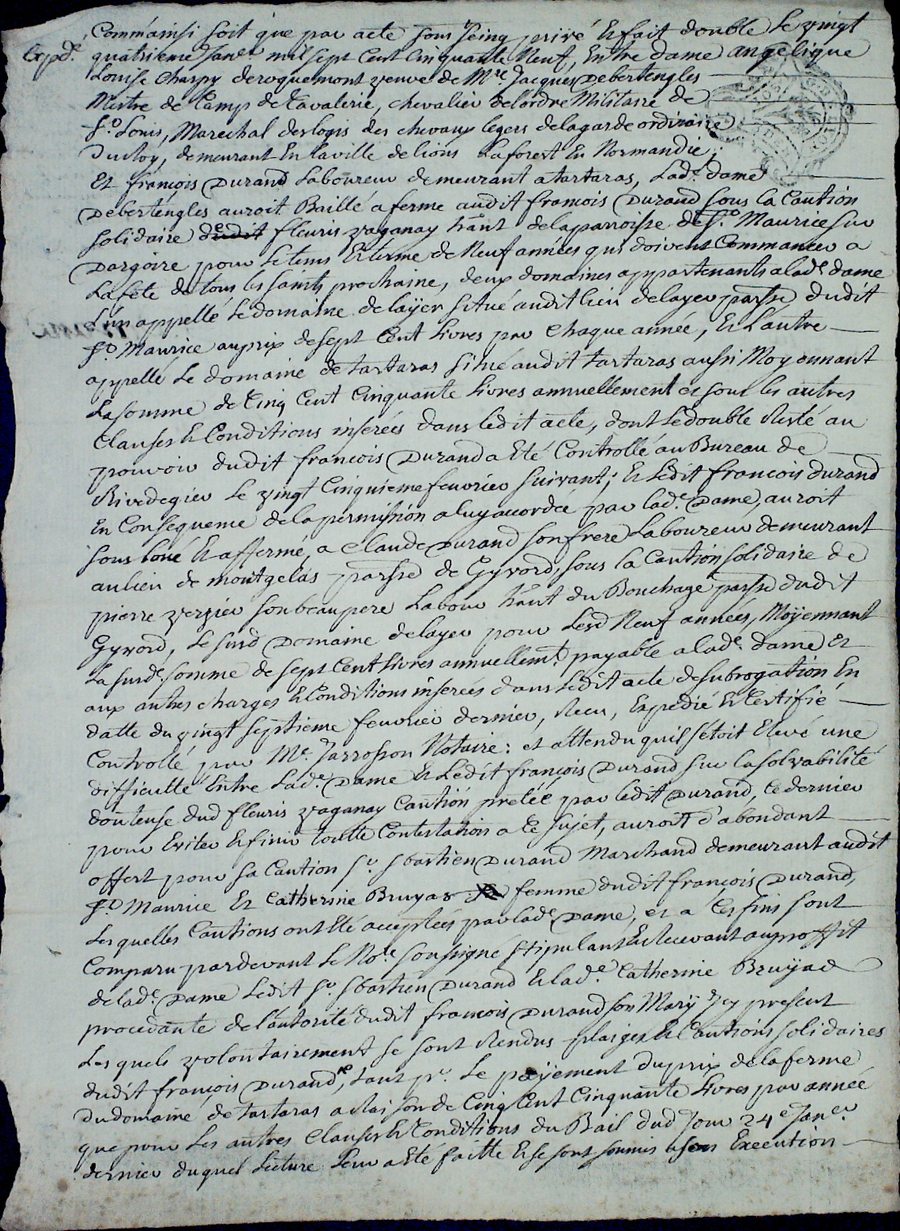 Expdé.
Comm'ainsi soit que par acte sous seing privé et fait double le vingt
quatrieme Janer. mil sept cent cinquante Neuf, Entre dame angelique
Louise Charpy deroquemont veuve de Mre. Jacques Debertengles
Mestre de Camp de Cavalerie, chevalier del'ordre Militaire de
St. Louis, Marechal des logis des chevaux legers dela garde ordinaire
Du Roy, demeurant En la ville de lions La forest En Normandie,
Et françois Durand Laboureur demeurant a tartaras, Lade. dame
Debertengles auroit Baillé a ferme audit francois Durand sous la Caution
solidaire de fleuris vaganay hant. delaparroisse de St. Maurice sur
Dargoire pour le tems et terme de Neuf années qui doivent Commancer a
La fête de tous les saints prochaine, deux domaines appartenants a lade. dame
L'un appellé le domaine de layer situé audit lieu delayer parsse dudit
St. Maurice au prix de sept Cent Livres par chaque année, Et L'autre
appellé Le domaine de tartaras situé audit tartaras aussi Moyennant
La somme de Cinq Cent Cinquante livres annuellement et sous les autres
Clauses et Conditions inserées dans ledit acte, dont le double Resté au
pouvoir dudit francois Durand a Eté Controllé au Bureau de
Rivedegier le vingt Cinquieme fevrier suivant; Et ledit francois durand
En Consequence dela permission a luy accordée par lade. Dame, auroit
sous loué Et affermé, a Claude Durand son frere Laboureur demeurant
au lieu de montgelas parsse de Gyvord, sous la Caution solidaire de
pierre verzier son beaupere Labour. hant du Bouchage parsse dudit
Gyvord, Le susd Domaine delayer pour Lesd Neuf années, Moÿennant
La susde. somme de sept Cent Livres annuellemt. payable a lade. dame Et
aux autres charges et Conditions inserées dans Ledit acte de subrogation En
datte du vingt septieme fevrier dernier, Recu, Expedié Et Certifié
Controllé par Me. Jarrosson Notaire: et attendu quil s'étoit Elevé une
difficulté Entre Lade. Dame Et Ledit françois Durand sur la solvabilité
douteuse dud fleuris vaganay Caution pretée par ledit Durand, Ce dernier
pour Eviter Et finir toutte Contestation a Ce sujet, auroit d'abondant
offert pour sa Caution sr. sbastien Durand Marchand demeurant audit
St. Maurice Et Catherine Bruyas femme dudit françois Durand,
Les quelles Cautions ont Eté acceptées par lade. Dame, et a Ces fins sont
Comparu pardevant Le Nore. soussigné stipulant Et Recevant au proffit
de lade. Dame Ledit sr sbastien Durand Et lade. Catherine Bruÿas
procedante de l'autorité dudit francois Durand son Mary Icy present
Les quels volontairement se sont Rendus plaiges et Cautions solidaires
dudit françois Durand, tant pr. Le payement du prix dela ferme
Du domaine de tartaras a Raison de Cinq Cent Cinquante Livres par année
que pour Les autres Clauses et Conditions du Bail dud Jour 24e. Janer.
dernier duquel Lecture Leur a Eté faitte Et se sont soumis Execution